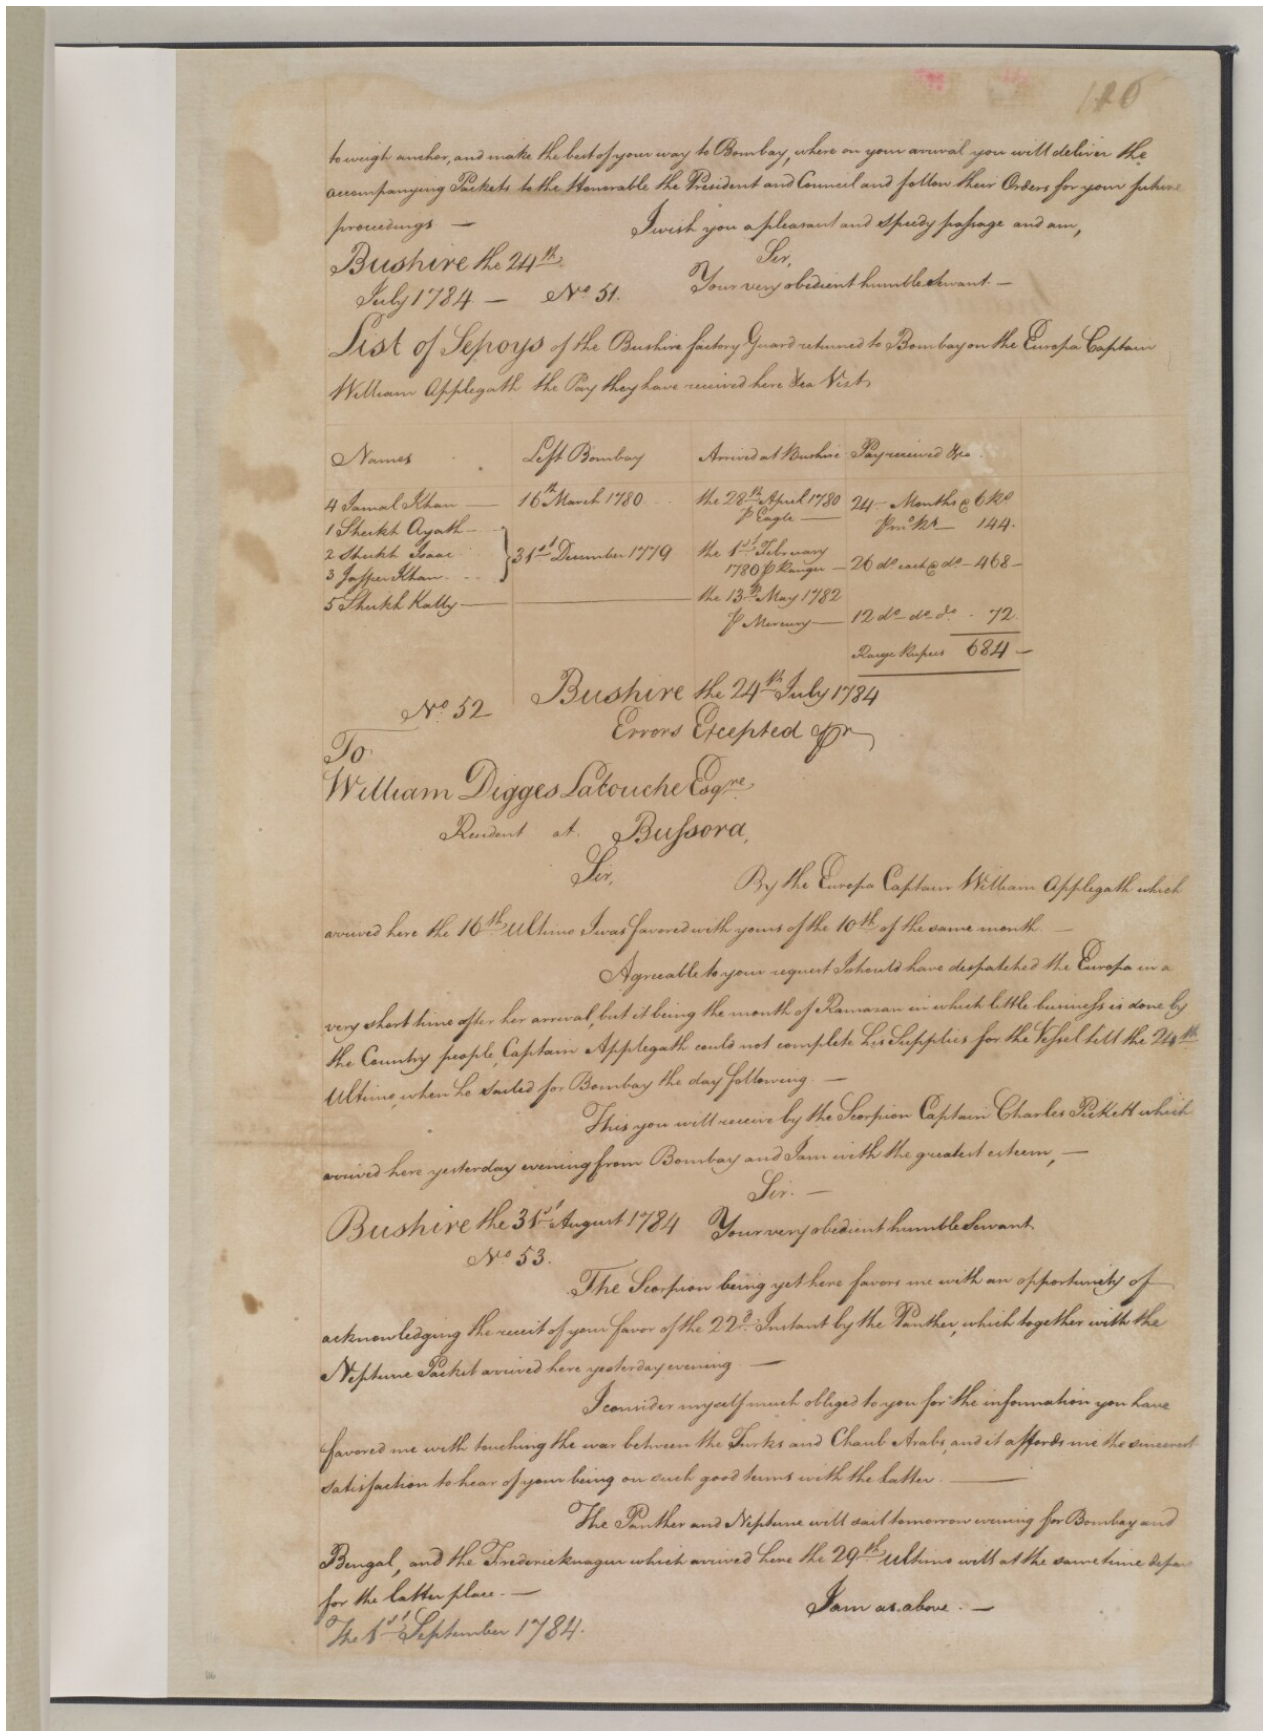 120
to weigh anchor, and make the best of your way to Bombay, where on your arrival you will deliver the
accompanying Packets to the Honorable the President and Council and follow their Orders for your future
proceedings — I wish you a pleasant and speedy passage and am,
Sir,
Bushire the 24th
Your very obedient humble Servant —
July 1784 — No 51.
List of Sepoys of the Bushire factory Guard returned to Bombay on the Europa Captain
William Applegath the Pay they have received here
Names Left Bombay Arrived at Bushire Pay received &ca
4 Jamal Khan — 16th March 1780 the 28th April 1780 24 Months @ 6 Rs
P Eagle — 144.
1 Sheikh Ayath
2 Sheikh Isaac 31st December 1779 the 1st February
3 Jaffer Khan 1780 P Ranger — 26 do each @ do — 468 —
5 Sheikh Kally — the 13th May 1782
P Mercury — 12 do do do 72
Rupees 684 —
Bushire the 24th July 1784
No 52
Errors Excepted
To
William Digges Latouche Esqre
Resident at Bussora,
Sir,
By the Europa Captain William Applegath which
arrived here the 16th Ultimo I was favored with yours of the 10th of the same month —
Agreeable to your request I should have despatched the Europa in a
very short time after her arrival, but it being the month of Ramazan in which little business is done by
the Country people, Captain Applegath could not complete his Supplies for the Vessel till the 24th
Ultimo, when he sailed for Bombay the day following. —
This you will receive by the Scorpion Captain Charles Pickett which
arrived here yesterday evening from Bombay and I am with the greatest esteem, —
Sir. —
Bushire the 31st August 1784 Your very obedient humble Servant
No 53.
The Scorpion being yet here favors me with an opportunity of
acknowledging the receit of your favor of the 22d Instant by the Panther, which together with the
Neptune Packet arrived here yesterday evening —
I consider myself much obliged to you for the information you have
favored me with touching the war between the Turks and Chaub Arabs, and it affords me the sincerest
satisfaction to hear of your being on such good terms with the latter. —
The Panther and Neptune will sail tomorrow evening for Bombay and
Bengal, and the Fredericknagur which arrived here the 29th Ultimo will at the same time depar
for the latter place. — I am as above. —
The 1st September 1784.